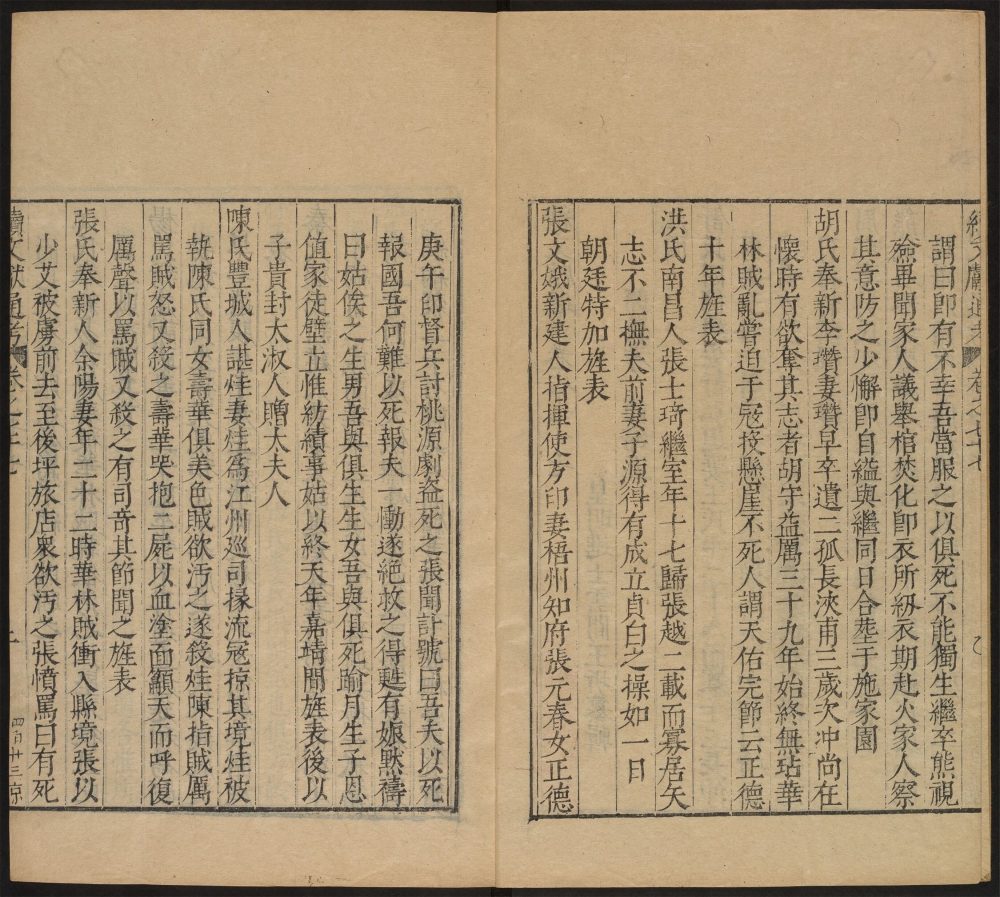 續文獻通考 卷之七十七
謂曰即有不幸吾當服之以俱死不能獨生繼卒熊視
殮畢聞家人議舉棺焚化即衣所紉衣期赴火家人察
其意防之少懈即自縊與繼同日合塟于施家園
胡氏奉新李瓚妻瓚早卒遺二孤長浹甫三歲次冲尚在
懷時有欲奪其志者胡守益厲三十九年始終無玷華
林賊亂嘗迫于冦投懸崖不死人謂天佑完節云正德
十年旌表
洪氏南昌人張士琦繼室年十七歸張越二載而寡居矢
志不二撫夫前妻子源得有成立貞白之操如一日
朝廷特加旌表
張文娥新建人指揮使方印妻梧州知府張元春女正德
庚午印督兵討桃源劇盜死之張聞訃號曰吾夫以死
報國吾何難以死報夫一慟遂絕救之得甦有娠默禱
曰姑俟之生男吾與俱生生女吾與俱死踰月生子恩
值家徒壁立惟紡績事姑以終天年嘉靖間旌表後以
子貴封太淑人贈太夫人
陳氏豐城人諶烓妻烓為江州巡司掾流冦掠其境烓被
執陳氏同女壽華俱美色賊欲汚之遂殺烓陳指賊厲
罵賊怒又殺之壽華哭抱二屍以血塗面籲天而呼復
厲聲以罵賊又殺之有司奇其節聞之旌表
張氏奉新人余陽妻年二十二時華林賊衝入縣境張以
少艾被虜前去至後坪旅店衆欲汚之張憤罵曰有死
續文獻通考 卷之七十七 二 四百十三 京